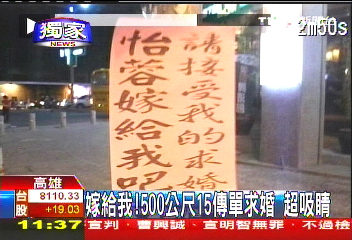 獨家
NEWS
2m50s
請接受我的求婚
怡蓉嫁給我吧
高雄
台股 8110.33
+19.03
嫁給我!500公尺15傳單求婚 超吸睛
11:37 宣判、曹興誠、宣明智無罪、不過檢